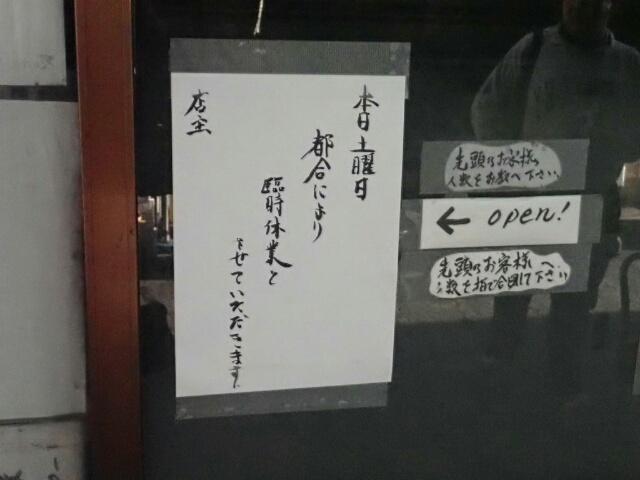 本日土曜日
都合により
臨時休業と
させていただきます。
店主
先頭のお客様
人数をお数へ下さい
← open!
先頭のお客様へ
人数を指で合図して下さい